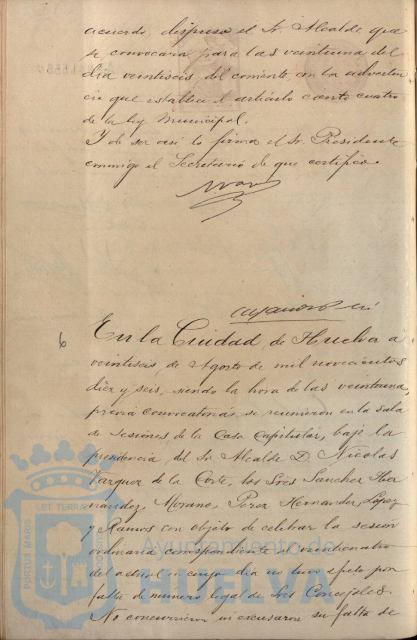 acuerdo, dispuso el Sr. Alcalde que
se convocara para las veintiuna del
dia veintiseis del corriente, con la adverten
cia que establece el artículo ciento cuatro
de la ley Municipal.
Y de ser asi lo firma el Sr. Presidente
conmigo el Secretario de que certifico.
6
En la Ciudad de Huelva a
veintiseis de Agosto de mil novecientos
diez y seis, siendo la hora de las veintiuna,
previa convocatoria, se reunieron en la sala
de sesiones de la Casa Capitular, bajo la
presidencia del Sr. Alcalde D. Nicolas
Vazquez de la Corte, los Sres Sanchez Her
nandez, Morano, Perez Hernandez, Lopez
y Ramos con objeto de celebrar la sesion
ordinaria correspondiente al veinticuatro
del actual en cuyo dia no tuvo efecto por
falta de numero legal de Sres Concejales.
No concurrieron ni escusaron su falta de
PORTUS MARIS ET TERRÆ
Ayuntamiento de
HUELVA